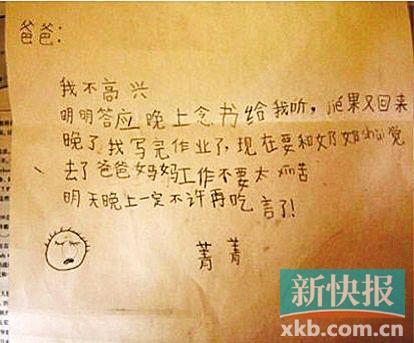 爸爸:
我不高兴
明明答应晚上念书给我听,jie果又回来
晚了,我写完作业了,现在要和奶奶shuì觉
去了爸爸妈妈工作不要太 苦
明天晚上一定不许再吃言了!
菁菁
新快报
xkb.com.cn